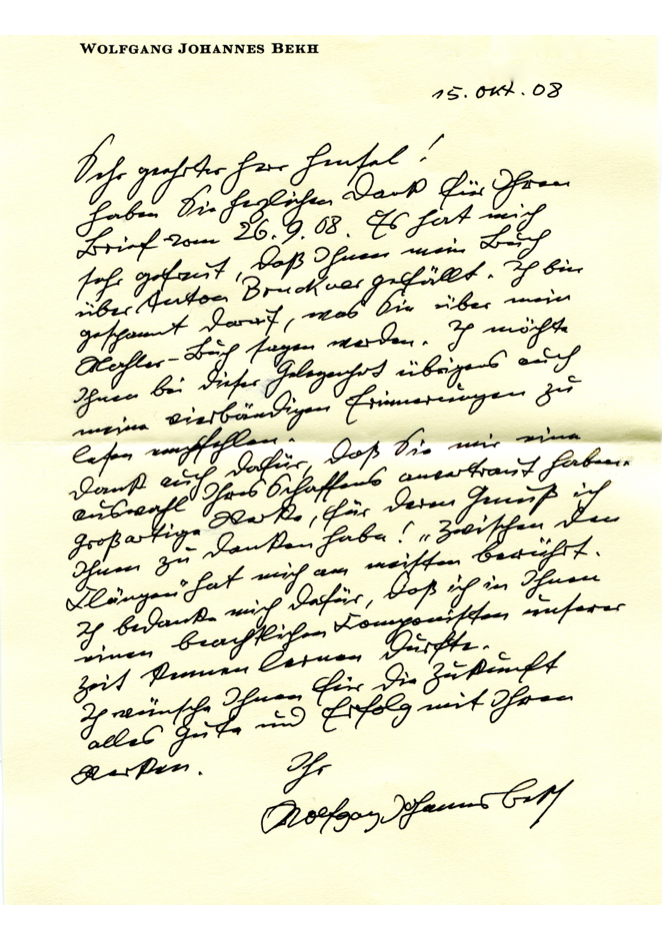 WOLFGANG JOHANNES BEKH
15. Okt. 08
Sehr geehrter Herr Hensel!
haben Sie herzlichen Dank für Ihren
Brief vom 26.9.08. Es hat mich
sehr gefreut, daß Ihnen mein Buch
über Anton Bruckner gefällt. Ich bin
gespannt darauf, was Sie über mein
Mahler-Buch sagen werden. Ich möchte
Ihnen bei dieser Gelegenheit übrigens auch
meine vierbändigen Erinnerungen zu
lesen empfehlen.
Dank auch dafür, daß Sie mir eine
Auswahl Ihres Schaffens anvertraut haben.
Großartige Werke, für deren Genuß ich
Ihnen zu danken habe! „Zwischen den
Klängen" hat mich am meisten berührt.
Ich bedanke mich dafür, daß ich in Ihnen
einen beachtlichen Komponisten unserer
Zeit kennen lernen durfte.
Ich wünsche Ihnen für die Zukunft
alles Gute und Erfolg mit Ihren
Werken.
Ihr
Wolfgang Johannes Bekh